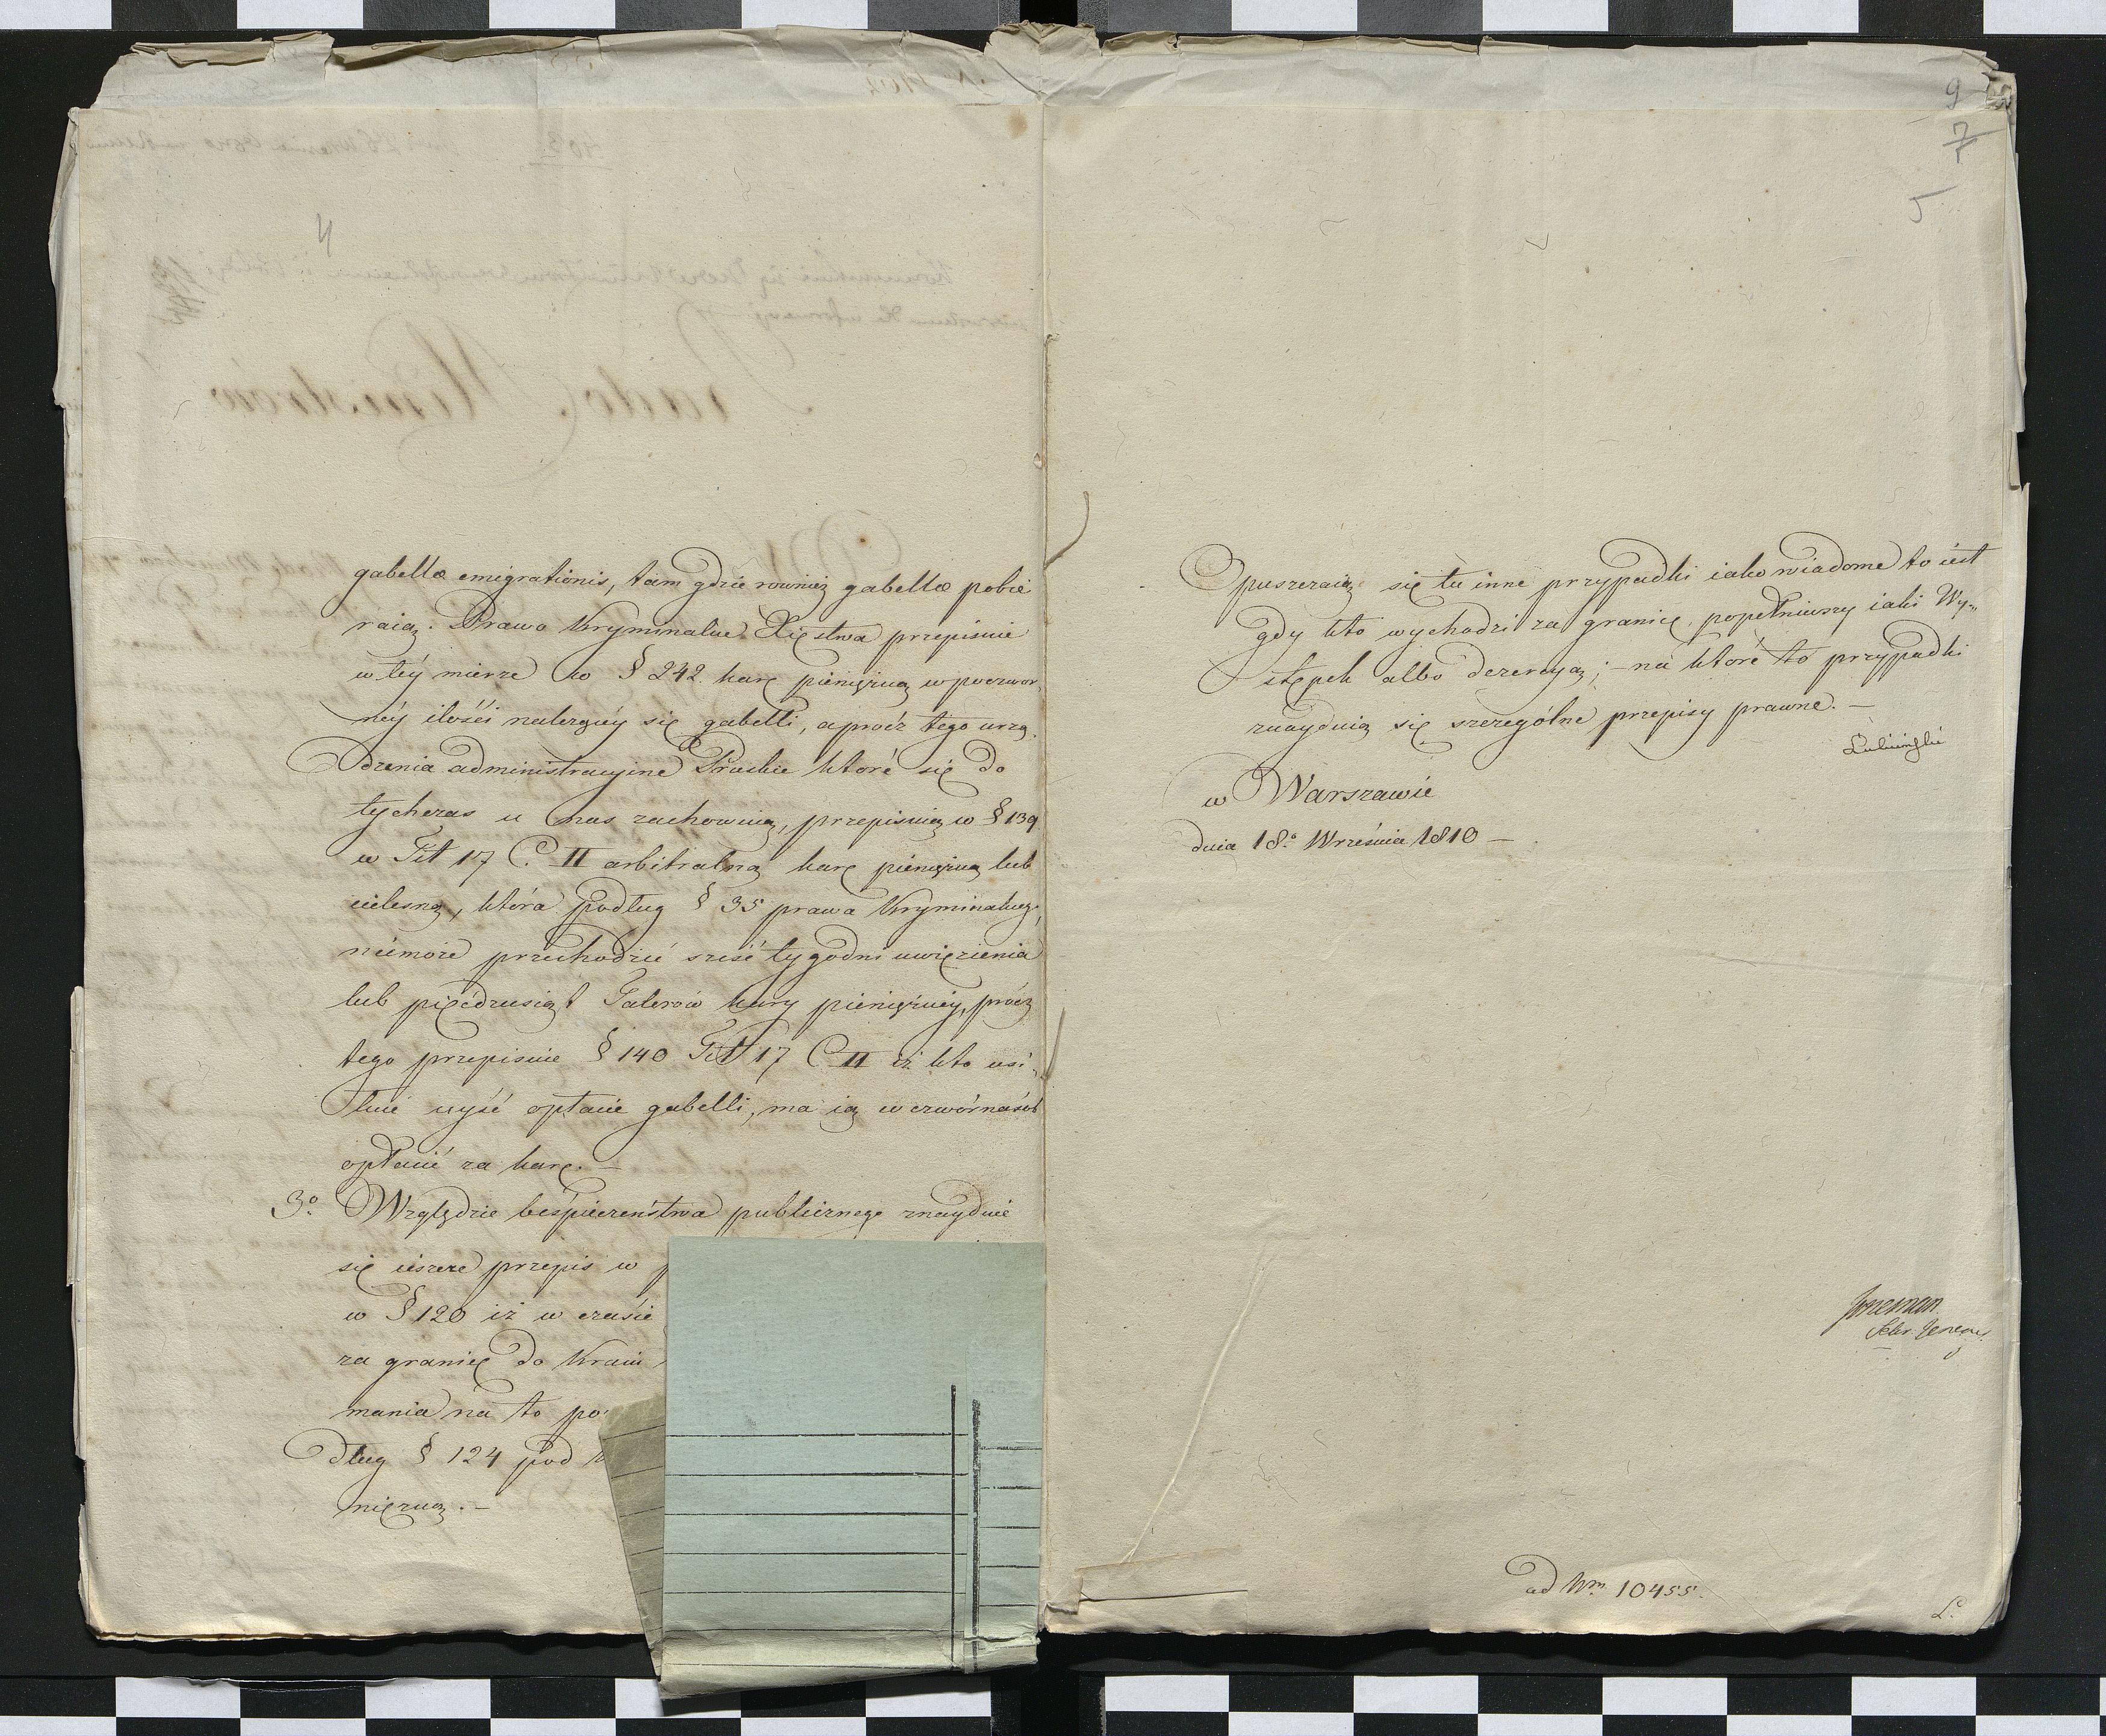 4
gabellæ emigrationis, tam gdzie rownież gabellæ pobie
raią. Prawo Kryminalne Xięstwa przepisuie
w téy mierze w § 242. karę pieniężną w poczwor,
néy ilośći należącéy się gabelli, a procz tego urzą
dzenia administracyine Pruskie które się do
tychczas u nas zachowuią, przepisuią w § 139
w Tit 17 C. II arbitralną karę pieniężną lub
cielesną, która podług § 35 prawa Kryminalnego,
niemoże przechodzić sześć tygodni uwięzienia
lub pięćdziesiąt Talerów kary pieniężnéy, prócz
tego przepisuie § 140 Tit 17 C II iż kto usi,
łuie uyść opłacie gabelli, ma ią w czwórnasób
opłacić za karę. —
3o. Względzie bespieczeństwa publicznego znayduie
się ieszcze przepis w
w § 120 iż w czasie
za granicę do Kraiu
mania na to po
dług § 124 pod
niężną. —
9
7
5
Opuszczaią się tu inne przypadki iako wiadome to iest
gdy kto wychodzi za granicę popełniwszy iaki Wy„
stępek albo dezercyą; — na które to przypadki
znayduią się szczególne przepisy prawne. —
Łubieński
w Warszawie
dnia 18o. Września 1810 —
Sekr Jener
ad Nrm. 10455.